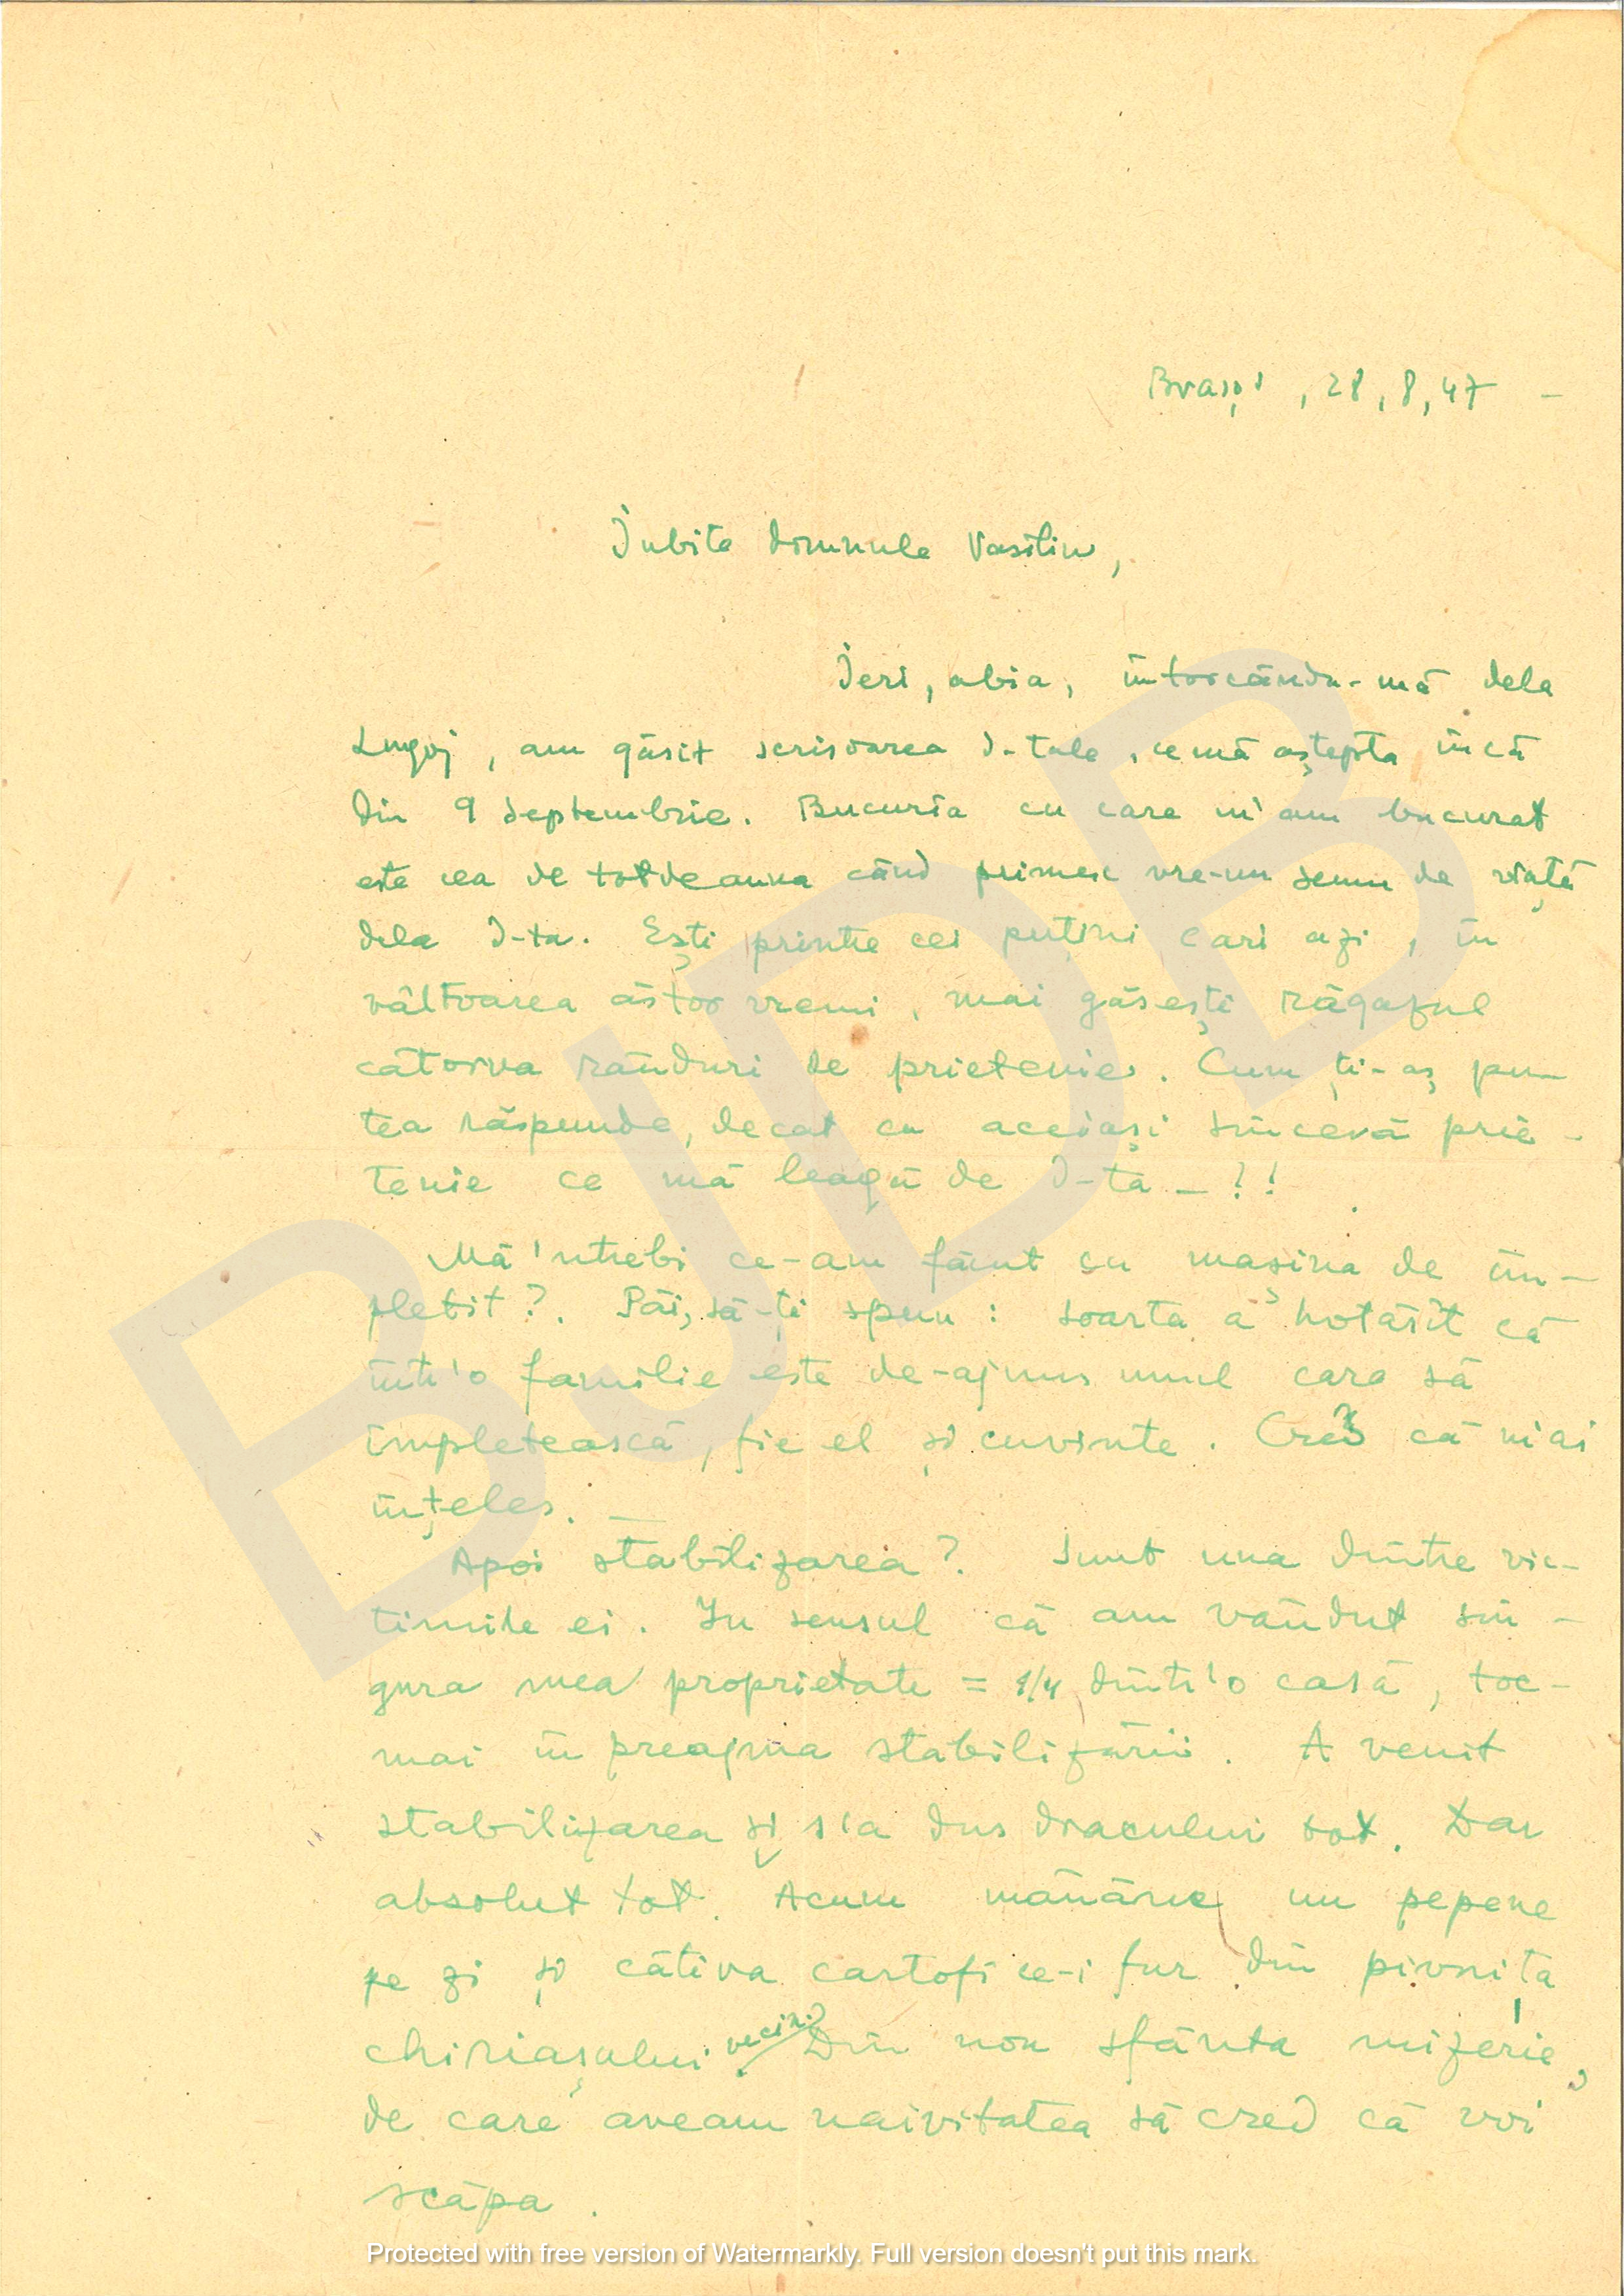 Brașov, 28, 8, 47 —
Iubite domnule Vasiliu,
Ieri, abia, întorcându-mă dela
Lugoj, am găsit scrisoarea d-tale, ce mă aștepta încă
din 9 Septembrie. Bucuria cu care m'am bucurat
este cea de totdeauna când primesc vre-un semn de viață
dela D-ta. Ești printre cei puțini cari azi, în
vâltoarea ăstor vremi, mai găsești răgazul
câtorva rânduri de prietenie. Cum ți-aș pu-
tea răspunde, decat cu aceiași sinceră prie-
tenie ce mă leagă de D-ta — !!
Mă 'ntrebi ce-am făcut cu mașina de îm-
pletit?. Păi, să-ți spun: soarta a hotărît că
într'o familie este de-ajuns unul care să
împletească, fie el și cuvinte. Cred că m'ai
înțeles. —
Apoi stabilizarea? Sunt una dintre vic-
timile ei. In sensul că am vândut sin-
gura mea proprietate = 1/4 dintr'o casă, toc-
mai în preajma stabilizării. A venit
stabilizarea și s'a dus dracului tot. Dar
absolut tot. Acum mănânc un pepene
pe zi și câtiva cartofi ce-i fur din pivnița
chiriașului vecin. Din nou sfânta mizerie,
de care aveam naivitatea să cred că voi
scăpa.
BJDB
Protected with free version of Watermarkly. Full version doesn't put this mark.